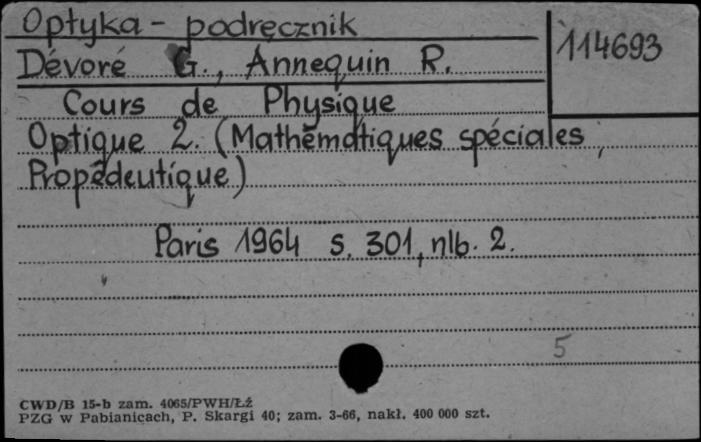 Optyka - podręcznik
114693
Dévoré G., Annequin R.
Cours de Physique
Optique 2. (Mathématiques spéciales,
Propédeutique)
Paris 1964 s. 301, nlb. 2.
5
CWD/B 15-b zam. 4065/PWH/Łź
PZG w Pabianicach, P. Skargi 40; zam. 3-66, nakł. 400 000 szt.